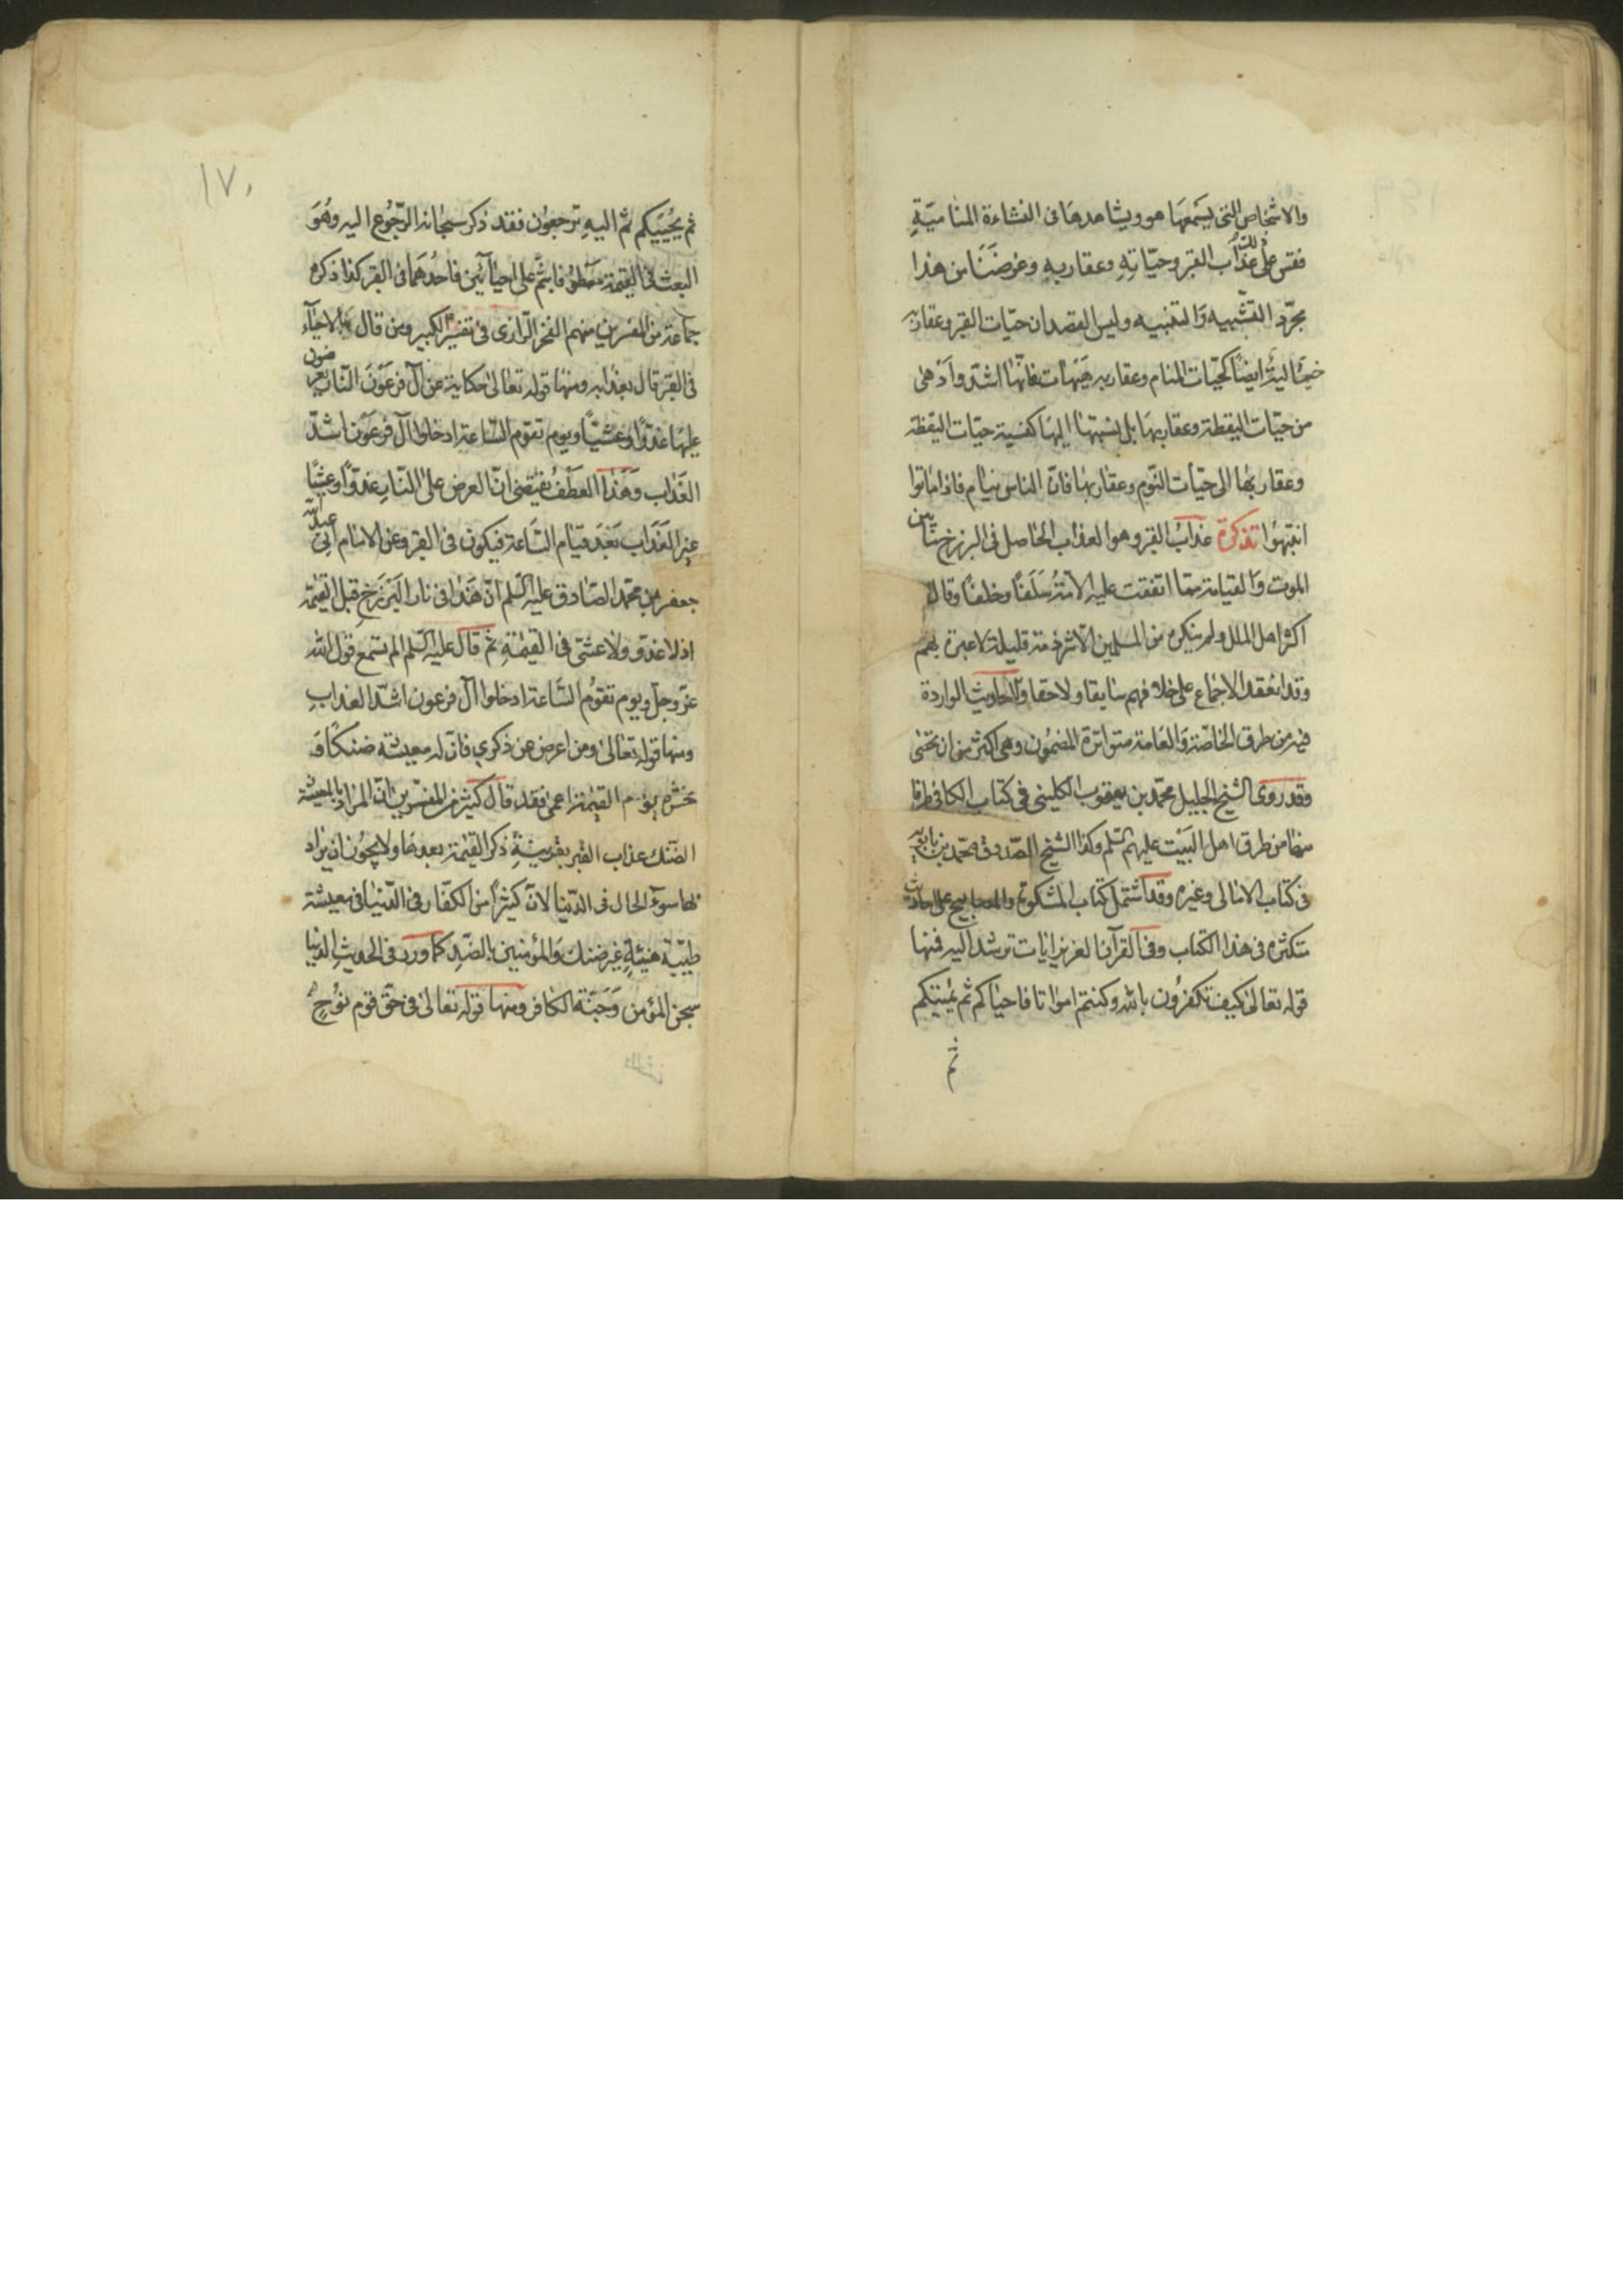 والاشخاص التى يسمعها هو ويشاهدها فى النشاءة المناميّةِ
فقس على ذلك عذاب القبر وحيّاتِهِ وعقاربهِ وغرضَنَا من هذا
مجرّد التشّبيه وَالتنبيه وليس القصد ان حيّات القبر وعقاربه
خياليّة ايضًا كحيّات المنام وعقاربه هَيْهات فانّها اشدّ وادْهى
من حيّات اليقظة وعقاربها بل نسبتها اليها كنسبة حيّات اليقظة
وعقاربها الى حيّات النّوم وعقاربها فانّ الناس نيام فاذا ماتوا
انتبهُوا تذكرة عذابُ القبر وهو العذاب الحاصل فى البرزخ مابين
الموت وَالقيامة ممّا اتفقت عليه الامّةُ سَلَفًا وخلفًا وقال به
اكثر اهل الملل ولم ينكره من المسلمين الّا شرذمة قليلة لا عبرة بهم
وقد انعقد الاجماع على خلافهم سابقا ولاحقا والاحاديث الواردة
فيه من طرق الخاصّة وَالعامة متواترة المضمُون وهى اكثر من ان تحصى
وقد روى الشيخ الجليل محمّد بن يعقوب الكلينى فى كتاب الكافى طرفا
منها من طرق اهل البَيْت عليهم السّلم وكذا الشيخ الصّدوق محمّد بن بابويه
فى كتاب الامالى وغيره وقد اشتمل كتاب المشكوة والمصابيح على احاديث
متكثره فى هذا الكتاب وفى القرآن العزيز ايات ترشد اليه فمنها
قوله تعالىٰ كيف تكفرُون بالله وكنتم امواتا فاحياكم ثم يُميتكم
ثم
١٧٠
ثم يُحْييكم ثم اليهِ ترجعون فقد ذكر سبحانه الرّجُوع اليه وهُوَ
البعث فى القيمة معطوفا بثمّ على احيائَين فاحدُهمَا فى القبر كذا ذكره
جماعة من المفسرين منهم الفخر الرّازى فى تفسيره الكبير ومن قال بالاحيآء
فى القبر قال بعذابه ومنها قوله تعالىٰ حكاية عن آل فرعَوْنَ النّار يعرضون
عليها غدوًّا وعشيّاً ويوم تقوم السّاعة ادخلوا آل فرعَوْن اشدّ
العَذاب وَهَذا العَطْفُ يقتضى انّ العرض على النّارِ غدوًّا وعشيًّا
غير العَذَاب بَعْدَ قيام السَّاعة فيكون فى القبر وعن الامام ابى عبد الله
جعفر بن محمّد الصّادق عليه السّلم انّ هَذا فى نار البَرْزَخِ قبل القيمة
اذ لا غدوّ ولا عشىّ فى القيٰمةِ ثمّ قال عليه السّلم الم تسمع قول الله
عزّ وجلّ ويوم تقومُ السَّاعة ادخلوا آل فرعون اشدّ العذابِ
ومنها قوله تعالىٰ ومن اعرض عن ذكري فانّ له معيشة ضنكًا و
نحشره يوم القيٰمة اعمى فقد قال كثير من المفسّرين انّ المراد بالمعيشة
الضّنك عذاب القبر بقرينةِ ذكر القيٰمة بعدها ولا يجُوز ان يراد
بها سوء الحال فى الدّنيا لانّ كثيرًا من الكفّار فى الدّنيا فى معيشة
طيّبة هنيئةٍ غير ضنك وَالمؤمنين بالضّدِ كما ورد فى الحديثِ الدنيا
سجن المؤمن وَجَنّة الكافر ومنها قوله تعالىٰ فى حقّ قوم نُوحٍ